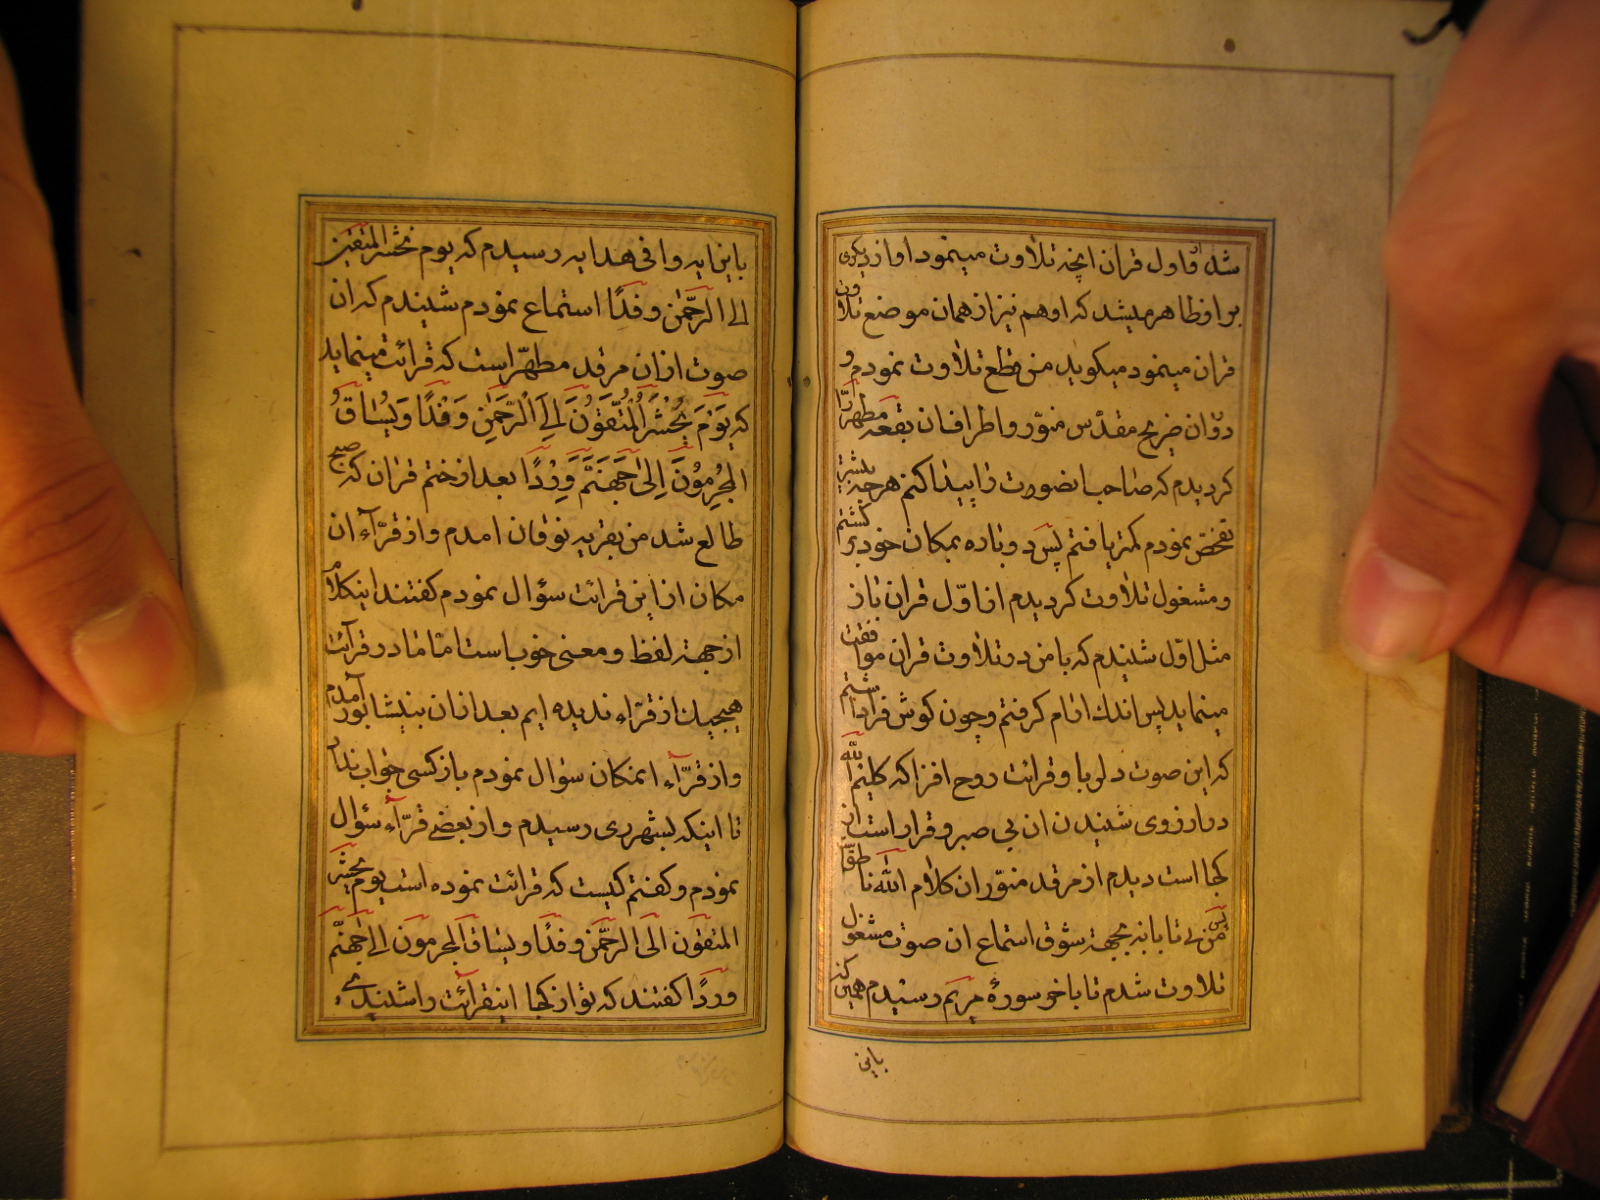 شد و اول قران انچه تلاوت مینمود اواز دیکری
بر او ظاهر میشد که او هم نیز از همان موضع تلاوت
قران مینمود میکوید من قطع تلاوت نمودم و
دوران ضریح مقدّس منوّر و اطراف ان بقعه مطهر را
کردیدم که صاحب انصورت را پیدا کنم هرچه بیشتر
تفحص نمودم کمتر یافتم پس دوباره بمکان خود بر کشتم
و مشغول تلاوت کردیدم از اوّل قران باز
مثل اوّل شنیدم که با من در تلاوت قران موافقت
مینماید پس اندک ارام کرفتم و چون کوش فرا داشتم
که این صوت دلربا و قرائت روح افزا که کلیم الله
در ارزوی شنیدن ان بی صبر و قرار است از
کجا است دیدم از مرقد منوّر ان کلام الله ناطق
پس من بی تابانه بجهة شوق استماع ان صوت مشغول
تلاوت شدم تا باخر سورهٔ مریم رسیدم همین که
باین
باین ایه وافی هدایه رسیدم که یوم نحشر المتقین
الی الرّحمٰن وفدًا استماع نمودم شنیدم که ان
صوت ازان مرقد مطهّر است که قرائت مینماید
که یَوْمَ یُحْشَرُ الْمُتَّقُونَ اِلَی الرَّحْمٰنِ وَفْدًا وَ یُسَاقُ
الْمُجْرِمُونَ اِلیٰ جَهَنَّمَ وِرْدًا بعد از ختم قران که صبح
طالع شد من بقریه نوقان امدم و از قرّآء ان
مکان از این قرائت سؤال نمودم کفتند اینکلام
از جهة لفظ و معنی خوب است امّا ما در قرآئت
هیچیک از قرّاء ندیده ایم بعد ازان بنیشابور آمدم
و از قرّآء انمکان سؤال نمودم باز کسی جواب نداد
تا اینکه بشهر ری رسیدم و از بعضے قرّآء سؤال
نمودم و کفتم کیست که قرائت نموده است یوم یحشر
المتقون الی الرّحمٰن وفدًا و یساق المجرمون الی جهنّم
وردًا کفتند که تو از کجا اینقرآئت را شنیدی